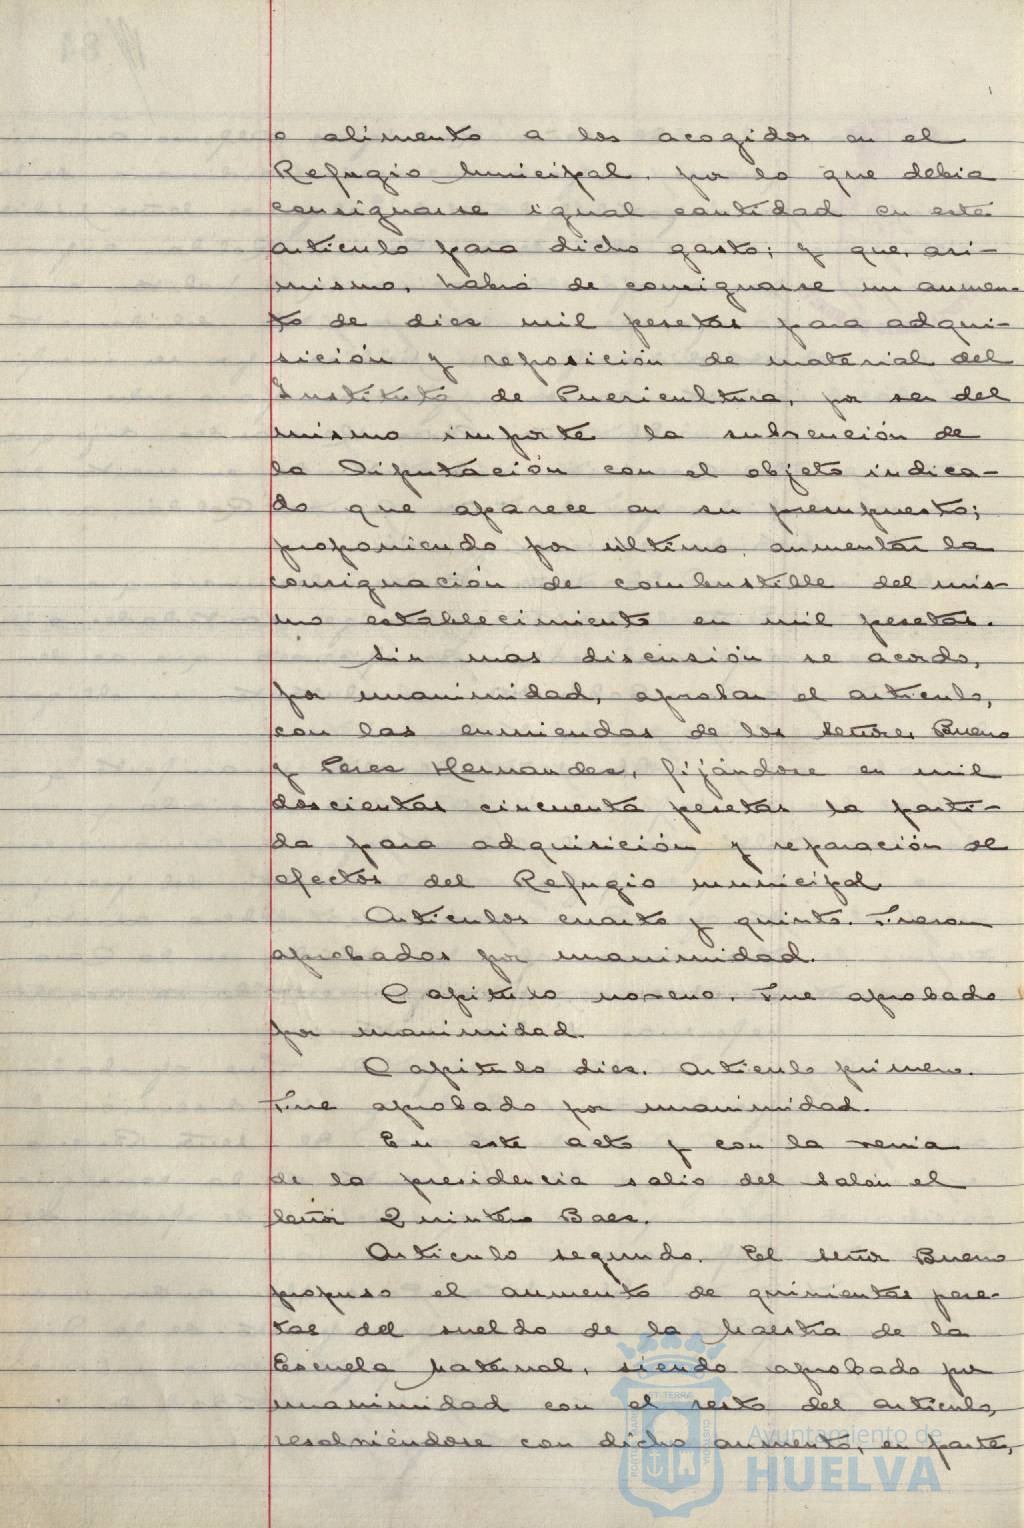 o alimento a los acogidos en el
Refugio Municipal, por lo que debia
consignarse igual cantidad en este
articulo para dicho gasto; y que, asi-
mismo, habia de consignarse un aumen-
to de dies mil pesetas para adqui-
sición y reposición de material del
Instituto de Puericultura, por ser del
mismo importe la subvención de
la Diputación con el objeto indica-
do que aparece en su presupuesto;
proponiendo por último, aumentar la
consignación de combustible del mis-
mo establecimiento en mil pesetas.
Sin mas discusión se acordo,
por unanimidad, aprobar el articulo,
con las enmiendas de los señores Bueno
y Peres Hernandes, fijándose en mil
doscientas cincuenta pesetas la parti-
da para adquisición y reparación de
efectos del Refugio municipal.
Articulos cuarto y quinto. Fueron
aprobados por unanimidad.
Capitulo noveno. Fue aprobado
por unanimidad.
Capitulo dies. Articulo primero.
Fue aprobado por unanimidad.
En este acto y con la venia
de la presidencia salio del salón el
señor Quintero Baes.
Articulo segundo. El señor Bueno
propuso el aumento de quinientas pese-
tas del sueldo de la Maestra de la
Escuela Maternal, siendo aprobado por
unanimidad con el resto del articulo,
resolviéndose con dicho aumento, en parte,
Ayuntamiento de
HUELVA